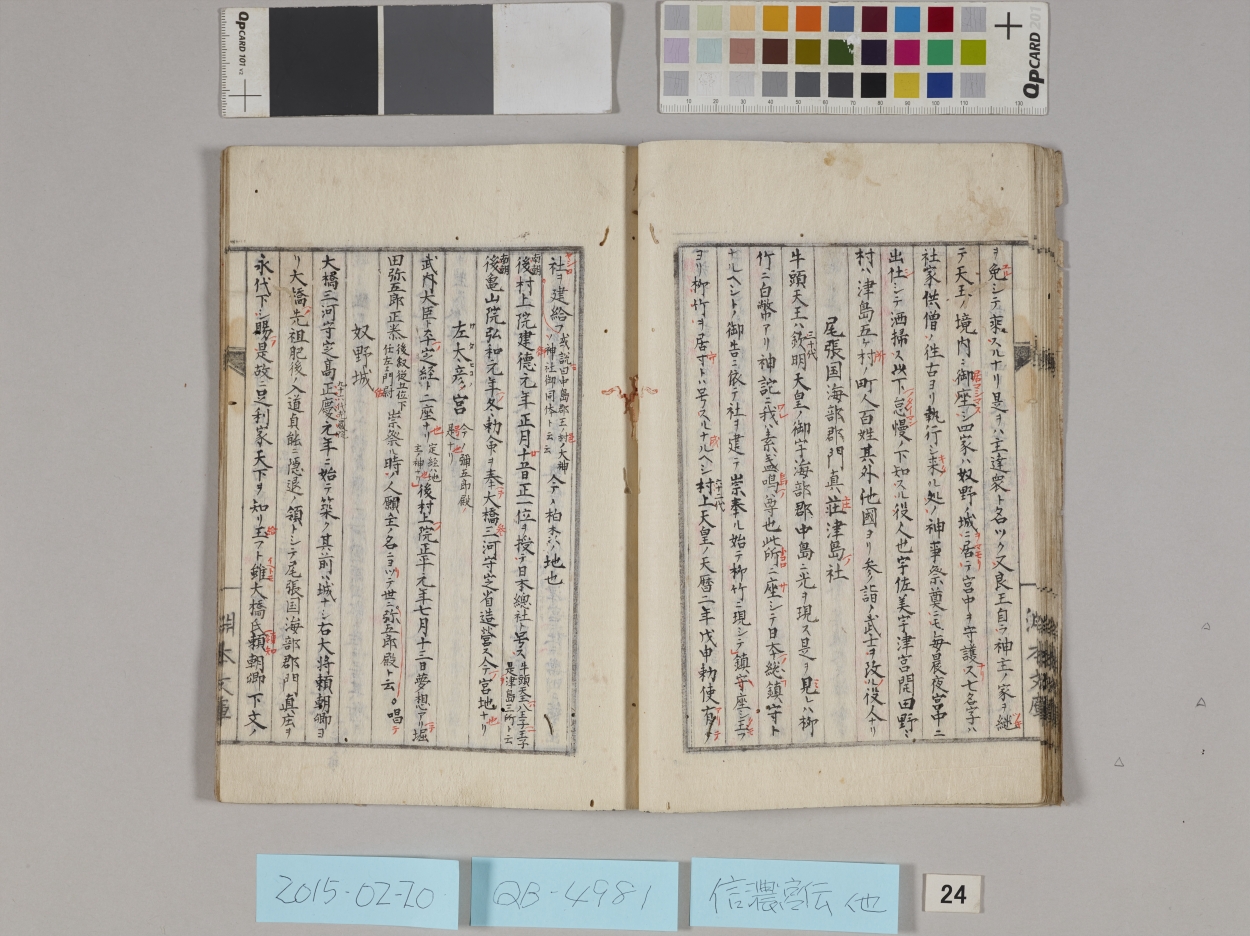 QPCARD 101 v2
QPCARD 201
ヲ免シテ乘スルナリ是ヲハ王達衆ト名ツク又良王自ラ神主ノ家ヲ継
テ天王ノ境内ニ御座シ四家ハ奴野ノ城ニ居テ宮中ヲ守護ス七名字ハ
社家供僧ハ往古ヨリ執行シ来ル処ノ神事祭奠ニモ毎晨夜宮中ニ
出仕シテ洒掃ス此下怠慢ノ下知スル役人也宇佐美宇津宮開田野々
村ハ津島五ケ村ノ町人百姓其外他國ヨリ参詣ノ武士ヲ改ル役人ナリ
尾張国海部郡門真荘津島社
牛頭天王ハ三十代欽明天皇ノ御宇海部郡中島ニ光ヲ現ス是ヲ見レハ柳
竹ニ白幣アリ神詫ニ我ハ素盞嗚尊也此所ニ座シテ日本総鎮守ト
ナルヘシトノ御告ニ依テ社ヲ建テ崇奉ル始テ柳竹ニ現シテ鎮守座シ玉フ
ヨリ柳竹ヲ居寸ト八号スルナルヘシ六十二代村上天皇ノ天暦二年戊申勅使有テ
社ヲ建給フ或説曰中島郡王ノ封大神ノ神社御同体ト云云今ハ柏木ノ地也
南朝後村上院建德元年正月十五日正一位ヲ授テ日本總社ト号ス牛頭天王八王子一王子是津島三所ト云
南朝後亀山院弘和元年冬勅命ヲ奉大橋三河守定省造營ス今ノ宮地ナリ
左太彦ノ宮今ノ彌五郎殿是ナリ
武内大臣ト平定経ト二座ナリ定経ハ地主神ナリ後村上院正平元年七月十三日夢想アリ堀
田弥五郎正泰後叙従五位下仕左衛門尉崇祭ル時ノ人願主ノ名ニヨツテ世ニ弥五郎殿ト云唱
奴野城
大橋三河守定高正慶元年ニ始テ築ク其前ハ城ナシ右大将頼朝卿ヨ
リ大橋先祖肥後ノ入道貞能ニ隱退ノ領トシテ尾張国海部郡門真庄ヲ
永代下シ賜ル是故ニ足利家天下ヲ知リ玉フト雖大橋氏頼朝卿下文ノ
2015-02-20
QB-4981
信濃宮伝 他
24